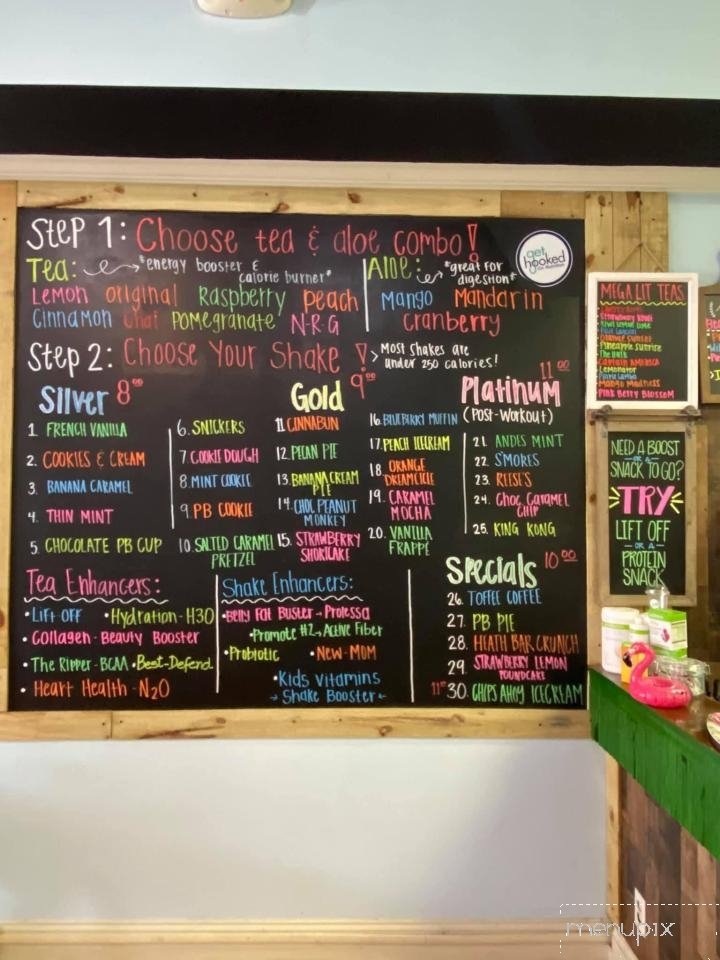 Step 1: Choose tea & aloe combo!
get
hooked
Tea: *energy booster &
calorie burner*
Lemon original Raspberry peach
Cinnamon chai Pomegranate N-R-G
Aloe: *great for
digestion*
Mango Mandarin
cranberry
Step 2: Choose Your Shake! > Most shakes are
under 250 calories!
Silver 8⁰⁰
1. FRENCH VANILLA
2. COOKIES & CREAM
3. BANANA CARAMEL
4. THIN MINT
5. CHOCOLATE PB CUP
6. SNICKERS
7. COOKIE DOUGH
8. MINT COOKIE
9. PB COOKIE
10. SALTED CARAMEL
PRETZEL
Gold 9⁰⁰
11. CINNABUN
12. PECAN PIE
13. BANANA CREAM
PIE
14. CHOC PEANUT
MONKEY
15. STRAWBERRY
SHORTCAKE
16. BLUEBERRY MUFFIN
17. PEACH ICECREAM
18. ORANGE
DREAMCICLE
19. CARAMEL
MOCHA
20. VANILLA
FRAPPÉ
Platinum 11⁰⁰
(POST-WORKOUT)
21. ANDES MINT
22. S'MORES
23. REESE'S
24. CHOC CARAMEL
CHIP
25. KING KONG
Tea Enhancers:
• Lift-OFF • Hydration-H30
• Collagen-Beauty Booster
• The Ripper-BCAA • Best-Defend
• Heart Health-N2O
Shake Enhancers:
• Belly Fat Buster → Prolessa
• Promote #2 → Active Fiber
• Probiotic • New-Mom
• Kids Vitamins
→ Shake Booster ←
Specials 10⁰⁰
26. TOFFEE COFFEE
27. PB PIE
28. HEATH BAR CRUNCH
29. STRAWBERRY LEMON
POUNDCAKE
11⁰⁰ 30. CHIPS AHOY ICECREAM
MEGA LIT TEAS
Kiwi Lemon Lime
Orange Sunset
Pineapple Sunrise
The Hulk
Captain America
Lemonator
Mango Madness
Pink Berry Blossom
NEED A BOOST
OR A
SNACK TO GO?
TRY
LIFT OFF
OR A
PROTEIN
SNACK
menupix